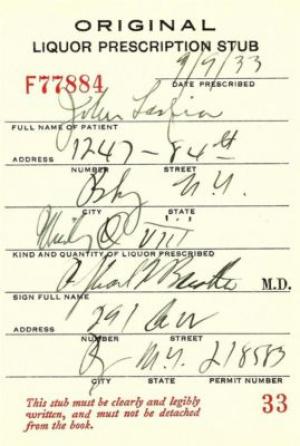 ORIGINAL
LIQUOR PRESCRIPTION STUB
9/9/33
F77884
DATE PRESCRIBED
John
FULL NAME OF PATIENT
1247 - 84 st
ADDRESS
NUMBER STREET
Bky N.Y.
CITY STATE
VIII
KIND AND QUANTITY OF LIQUOR PRESCRIBED
M.D.
SIGN FULL NAME
291
ADDRESS
NUMBER STREET
N.Y. 218583
CITY STATE PERMIT NUMBER
This stub must be clearly and legibly
written, and must not be detached
from the book.
33